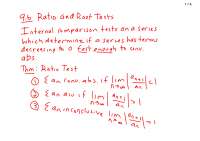 9.6 Ratio and Root Tests
Internal comparison tests on a series
which determine if a series has terms
decreasing to 0 fast enough to conv.
abs.
Thm: Ratio Test
① Σ an conv. abs. if lim n→∞ |an+1/an| < 1
② Σ an div if lim n→∞ |an+1/an| > 1
③ Σ an inconclusive lim n→∞ |an+1/an| = 1